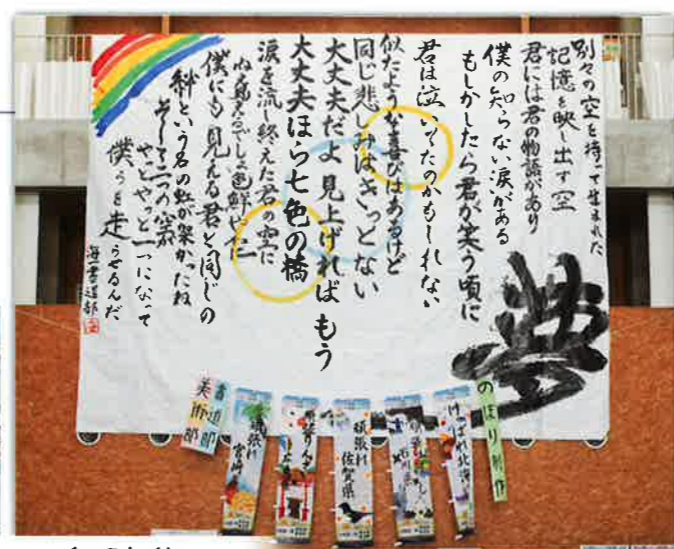 別々の空を持って生まれた
記憶を映し出す空
君には君の物語があり
僕の知らない涙がある
もしかしたら君が笑う頃に
君は泣いてたのかもしれない
似たような喜びはあるけど
同じ悲しみはきっとない
大丈夫だよ見上げればもう
大丈夫ほら七色の橋
涙を流し終えた君の空に
僕にも見える君と同じの
絆という名の虹が架かったね
そして二つの空が
やっとやっと一つになって
僕らを走らせるんだ
書道部
夢
のぼり制作
頑張れ
佐賀県
頑張れ
宮崎
書道部
美術部